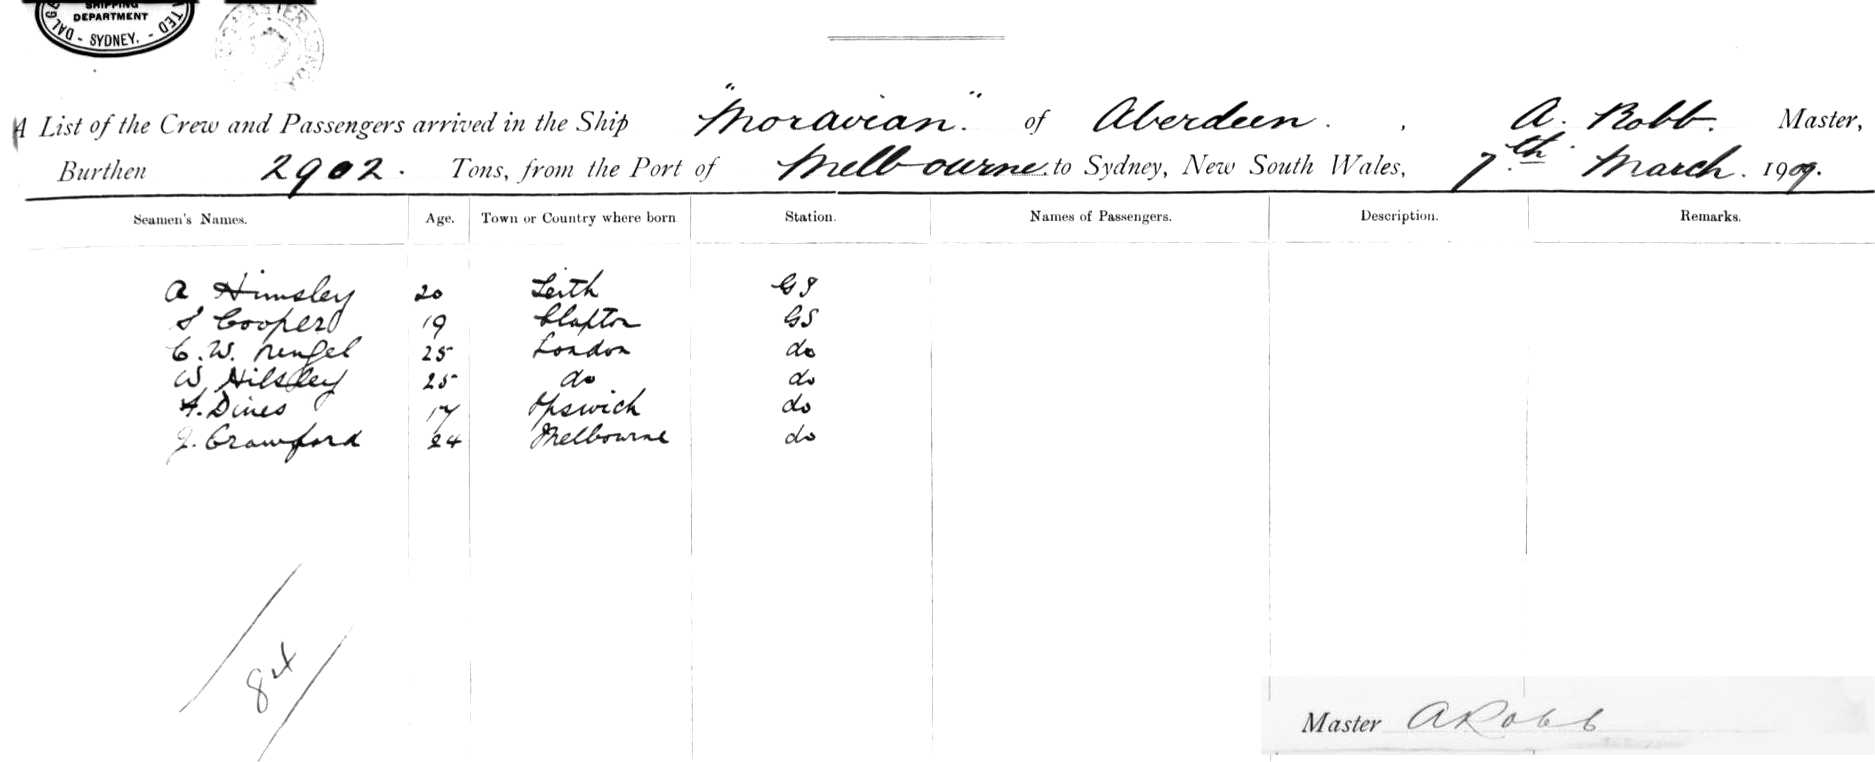 SHIPPING
DEPARTMENT
- SYDNEY. -
A List of the Crew and Passengers arrived in the Ship "Moravian". of Aberdeen. , A. Robb. Master,
Burthen 2902. Tons, from the Port of Melbourne. to Sydney, New South Wales, 7th March. 1909.
Seamen's Names. Age. Town or Country where born Station. Names of Passengers. Description. Remarks.
A Himsley 20 Leith GS
S Cooper 19 Clapton GS
C. W. 25 London do
W Hilsley 25 do do
F. Dines 17 Ipswich do
J. Crawford 24 Melbourne do
84
Master A Robb